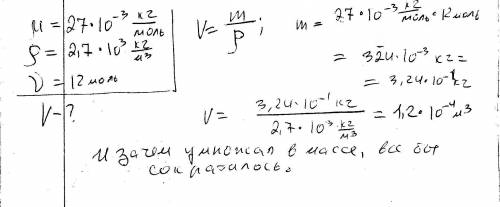 μ = 27·10⁻³ кг/моль
ρ = 2,7·10³ кг/м³
ν = 12 моль
V - ?
V = m/ρ ; m = 27·10⁻³ кг/моль · 12 моль
= 324·10⁻³ кг =
= 3,24·10⁻¹ кг
V = 3,24·10⁻¹ кг / 2,7·10³ кг/м³ = 1,2·10⁻⁴ м³
И зачем умножал в массе, все бы
сократилось.